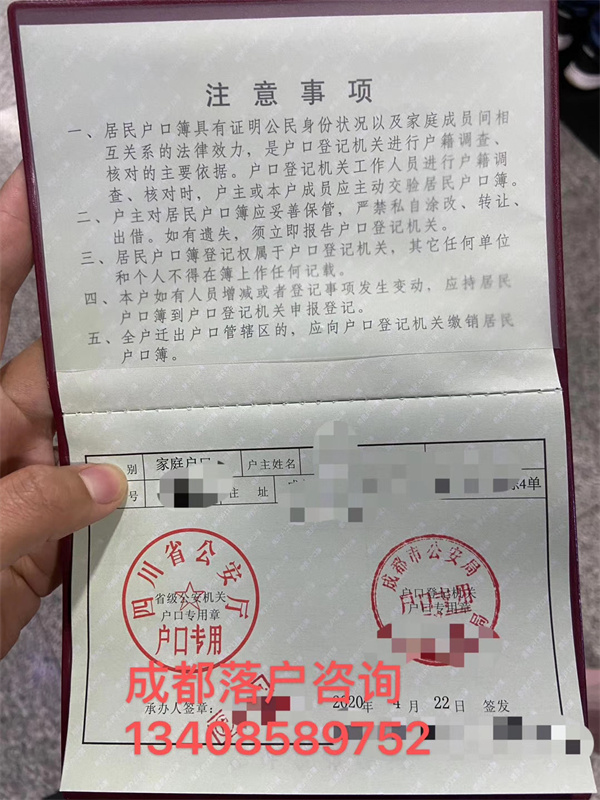 注意事项
一、居民户口簿具有证明公民身份状况以及家庭成员间相
互关系的法律效力，是户口登记机关进行户籍调查、
核对的主要依据。户口登记机关工作人员进行户籍调
查、核对时，户主或本户成员应主动交验居民户口簿。
二、户主对居民户口簿应妥善保管，严禁私自涂改、转让、
出借。如有遗失，须立即报告户口登记机关。
三、居民户口簿登记权属于户口登记机关，其它任何单位
和个人不得在簿上作任何记载。
四、本户如有人员增减或者登记事项发生变动，应持居民
户口簿到户口登记机关申报登记。
五、全户迁出户口管辖区的，应向户口登记机关缴销居民
户口簿。
别 家庭户口 户主姓名
号 住址 4单
四川省公安厅
省级公安机关
户口专用章
户口专用
成都市公安局
户口登记机关
户口专用章
户口专用
成都落户咨询
承办人签章： 2020年 4月 22日 签发
13408589752